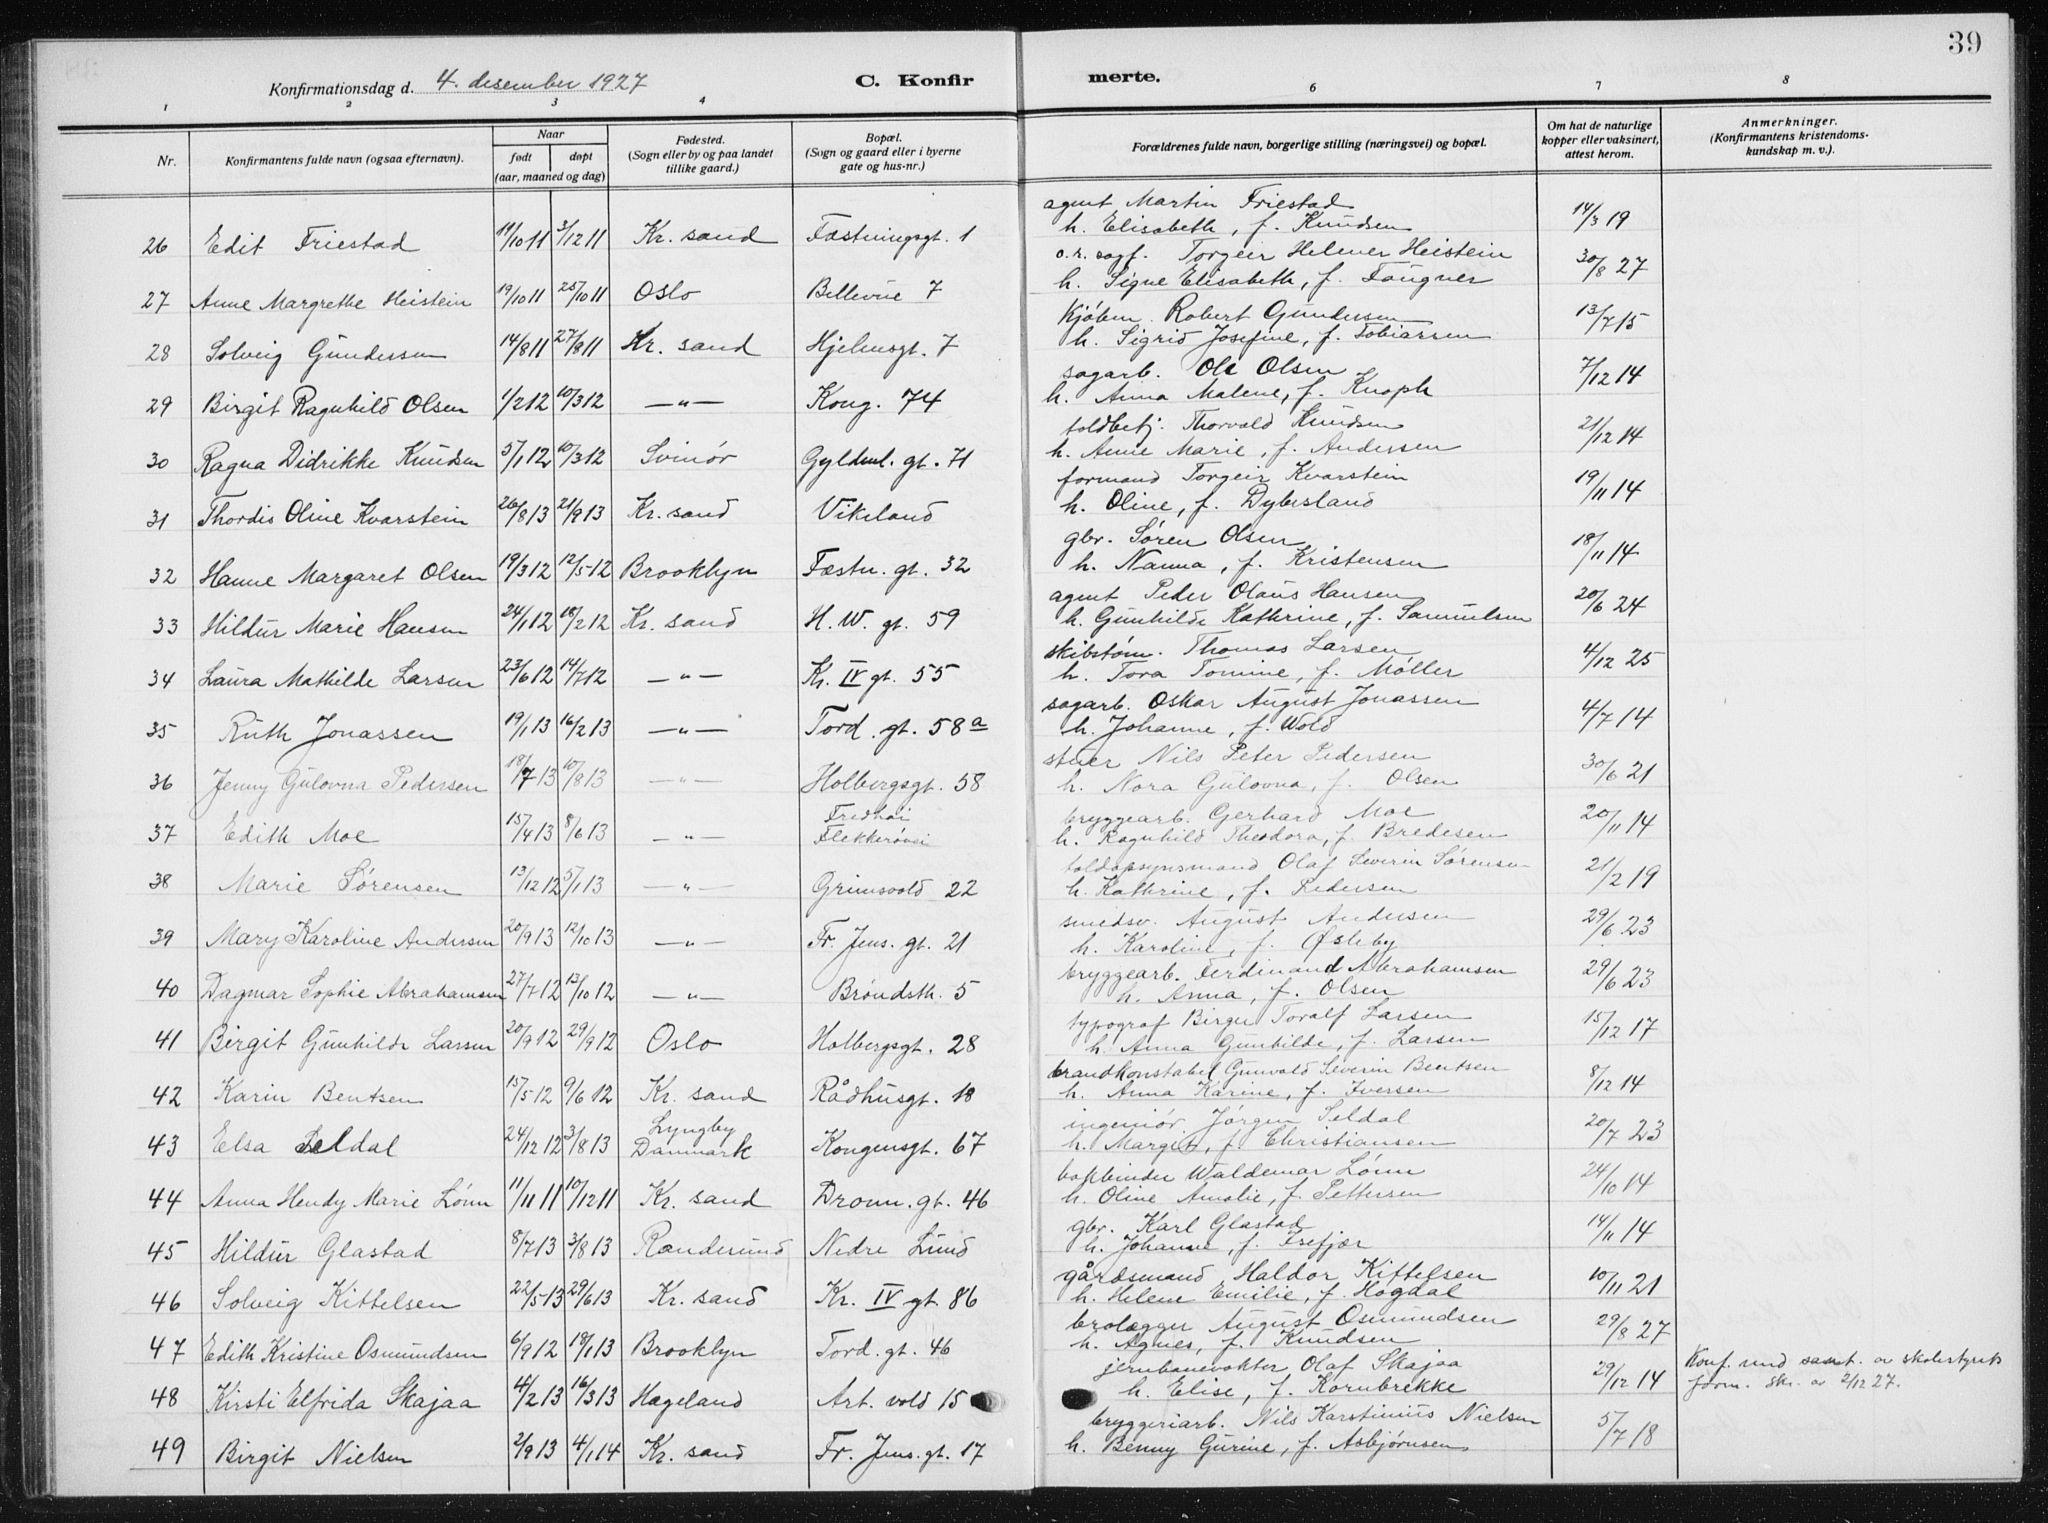 39
Konfirmationsdag d. 4. desember 1927 C. Konfir merte.
1 2 3 4 6 7 8
Nr. Konfirmantens fulde navn (ogsaa efternavn). Naar født døpt (aar, maaned og dag) Fødested. (Sogn eller by og paa landet tillike gaard.) Bopæl. (Sogn og gaard eller i byerne gate og hus-nr.) Forældrenes fulde navn, borgerlige stilling (næringsvei) og bopæl. Om hat de naturlige kopper eller vaksinert, attest herom. Anmerkninger. (Konfirmantens kristendoms- kundskap m. v.).
agent Martin Friestad
26 Edit Friestad 19/10 11 3/12 11 Kr. sand Fæstningsgt. 1 h. Elisabeth, f. Knudsen 14/3 19
o.r. sagf. Torgeir Helmer Heistein
27 Anne Margrethe Heistein 19/10 11 25/10 11 Oslo Bellevue 7 h. Signe Elisabeth, f. Faugner 30/8 27
kjøbm. Robert Gundersen
28 Solveig Gundersen 14/8 11 27/8 11 Kr. sand Hjelmsgt. 7 h. Sigrid Josefine, f. Tobiassen 13/7 15
sagarb. Ole Olsen
29 Birgit Ragnhild Olsen 1/2 12 10/3 12 —"— Kong. 74 h. Anna Malene, f. Knoph 7/12 14
toldbetj. Thorvald Knudsen
30 Ragna Didrikke Knudsen 5/1 12 10/3 12 Svinør Gyldenl. gt. 71 h. Anne Marie, f. Andersen 21/12 14
formand Torgeir Kvarstein
31 Thordis Oline Kvarstein 26/8 13 21/9 13 Kr. sand Vikeland h. Oline, f. Dybesland 19/11 14
gbr. Søren Olsen
32 Hanne Margaret Olsen 19/3 12 12/5 12 Brooklyn Fæstn. gt. 32 h. Nanna, f. Kristensen 18/11 14
agent Peder Olaus Hansen
33 Hildur Marie Hansen 24/1 12 18/2 12 Kr. sand H. W. gt. 59 h. Gunhilde Kathrine, f. Samuelsen 20/6 24
skibstøm. Thomas Larsen
34 Laura Mathilde Larsen 23/6 12 14/7 12 —"— Kr. IV gt. 55 h. Tora Tomine, f. Møller 4/12 25
sagarb. Oskar August Jonassen
35 Ruth Jonassen 19/1 13 16/2 13 —"— Tord. gt. 58a h. Johanne, f. Wold 4/7 14
stuer Nils Peter Pedersen
36 Jenny Gulovna Pedersen 18/7 13 10/8 13 —"— Holbergsgt. 58 h. Nora Gulovna, f. Olsen 30/6 21
bryggearb. Gerhard Moe
37 Edith Moe 15/4 13 8/6 13 —"— Fredhøi Flekkerøvei h. Ragnhild Theodora, f. Bredesen 20/11 14
toldopsynsmand Olaf Severin Sørensen
38 Marie Sørensen 13/12 12 5/1 13 —"— Grimsvold 22 h. Kathrine, f. Pedersen 21/2 19
smedsv. August Andersen
39 Mary Karoline Andersen 20/9 13 12/10 13 —"— Fr. Jens. gt. 21 h. Karoline, f. Øsleby 29/6 23
bryggearb. Ferdinand Abrahamsen
40 Dagmar Sophie Abrahamsen 27/7 12 13/10 12 —"— Brøndstr. 5 h. Anna, f. Olsen 29/6 23
typograf Birger Toralf Larsen
41 Birgit Gunhilde Larsen 20/9 12 29/9 12 Oslo Holbergsgt. 28 h. Anna Gunhilde, f. Larsen 15/12 17
brandkonstabel Gunvald Severin Bentsen
42 Karin Bentsen 15/5 12 9/6 12 Kr. sand Rådhusgt. 18 h. Anna Karine, f. Iversen 8/12 14
ingeniør Jørgen Seldal
43 Elsa Seldal 24/12 12 3/8 13 Lyngby Danmark Kongensgt. 67 h. Margit, f. Christiansen 20/7 23
bokbinder Waldemar Lønn
44 Anna Hendy Marie Lønn 11/11 11 10/12 11 Kr. sand Dronn. gt. 46 h. Oline Amalie, f. Pettersen 24/10 14
gbr. Karl Glastad
45 Hildur Glastad 8/7 13 3/8 13 Randesund Nedre Lund h. Johanne, f. Trefjær 14/11 14
gårdsmand Haldor Kittelsen
46 Solveig Kittelsen 22/5 13 29/6 13 Kr. sand Kr. IV gt. 86 h. Helene Emilie, f. Høgdal 10/11 21
brolægger August Osmundsen
47 Edith Kristine Osmundsen 6/9 12 19/1 13 Brooklyn Tord. gt. 46 h. Agnes, f. Knudsen 29/8 27
jernbanevokter Olaf Skajaa
48 Kirsti Elfrida Skajaa 4/2 13 16/3 13 Hægeland Art. vold 15 h. Elise, f. Kornbrekke 29/12 14 Konf. med samt. av skolestyrets form. skr. av 2/12 27.
bryggeriarb. Nils Karstinius Nielsen
49 Birgit Nielsen 2/9 13 4/1 14 Kr. sand Fr. Jens. gt. 17 h. Benny Gurine, f. Asbjørnsen 5/7 18